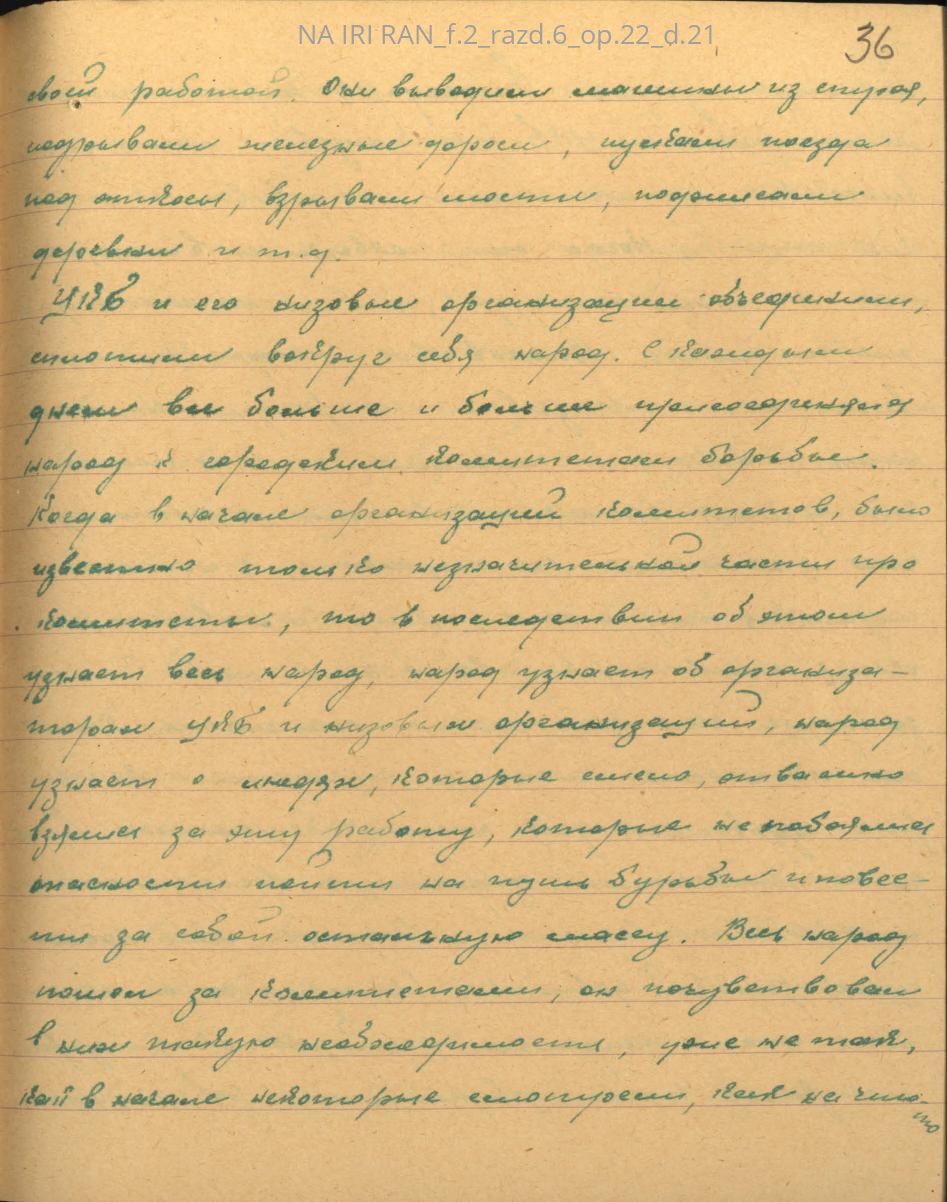 NA IRI RAN_f.2_razd.6_op.22_d.21
36
своей работой. Они выводили машины из строя,
подрывали железные дороги, пускали поезда
под откосы, взрывали мосты, поджигали
деревни и т.д.
ЦКБ и его низовые организации объединили,
сплотили вокруг себя народ. С каждым
днем все больше и больше присоединяя
народ к городским комитетам борьбы.
Когда в начале организаций комитетов, было
известно только незначительной части про
комитеты, то в последствии об этом
узнает весь народ, народ узнает об организа-
торах ЦКБ и низовых организаций, народ
узнает о людях, которые смело, отважно
взялись за эту работу, которые не побоялись
опасности пойти на путь борьбы и повес-
ти за собой остальную массу. Весь народ
пошел за комитетами, он почувствовал
в них такую необходимость, уже не так,
как в начале некоторые смотрели, как на что-
то